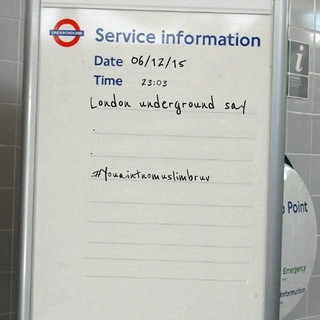 UNDERGROUND
Service information
Date 06/12/15
Time 23:03
London underground say
.
.
#Youaintnomuslimbruv
Point
Emergency
Information